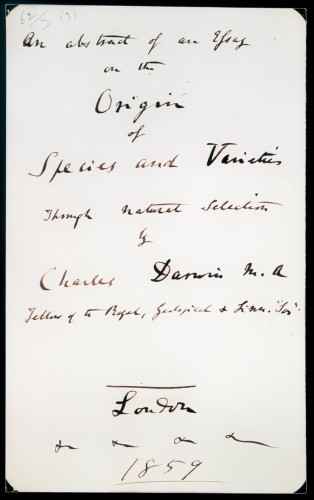 An abstract of an Essay
on the
Origin
of
Species and Varieties
Through natural Selection
by
Charles Darwin M. A
Fellow of the Royal, Geological & Linn. Soc.
London
& & & &
1859